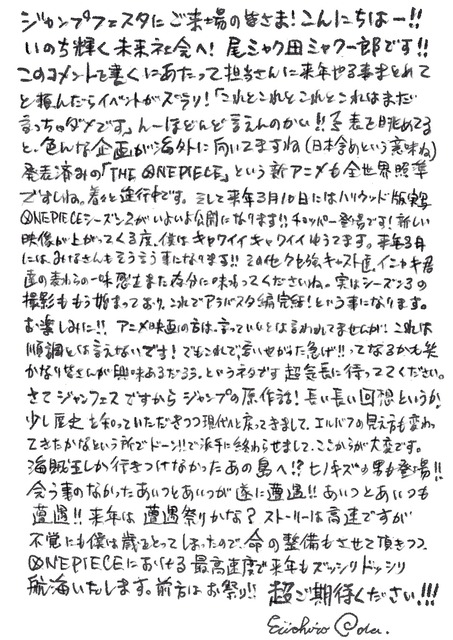 ジャンプフェスタにご来場の皆さま!こんにちはー!!
いのち輝く未来社会へ!尾ミャク田ミャクー郎です!!
このコメントを書くにあたって担当さんに来年やる事まとめて
と頼んだらイベントがズラリ!「これとこれとこれとこれはまだ
言っちゃダメです」んーほとんど言えんのかい!!予表を眺めてる
と、色んな企画が海外に向いてますね(日本含めという意味ね)
発表済みの「THE ONE PIECE」という新アニメも全世界照準
ですしね。着々と進行中です。そして来年3月10日にはハリウッド版実写
ONE PIECEシーズン2がいよいよ公開になります!!チョッパー登場です!新しい
映像が上がってくる度、僕はキャワイイキャワイイゆうてます。来年3月
には、みなさんもそう言う事になります!!その他クセ強キャスト達、イニャキ君
達の麦わらの一味感もまた存分に味わってくださいね。実はシーズン3の
撮影ももう始まっており、これでアラバスタ編完結!という事になります。
お楽しみに!!アニメ映画の方は、言っていいとは言われてませんが、これは
順調とは言えないです!でもこれで、言いやがった急げ!!ってなるかも笑
かなり皆さんが興味あるだろう、というネタです 超気長に待っててください。
さてジャンフェスですからジャンプの原作話!長い長い回想というか
少し歴史を知っていただきつつ現代へと戻ってきまして、エルバフの見え方も変わっ
てきたかなという所でドーン!!で派手に終わらせまして、ここからが大変です。
海賊王しか行きつけなかったあの島へ!?ヒノキズの男も登場!!
会う事のなかったあいつとあいつが遂に遭遇!!あいつとあいつも
遭遇!!来年は遭遇祭りかな?ストーリーは高速ですが
不覚にも僕は歳をとってしまったので、命の整備もさせて頂きつつ
ONE PIECEにおける最高速度で来年もズッシリドッシリ
航海いたします。前方はお祭り!!超ご期待ください!!!
Eiichiro Oda.